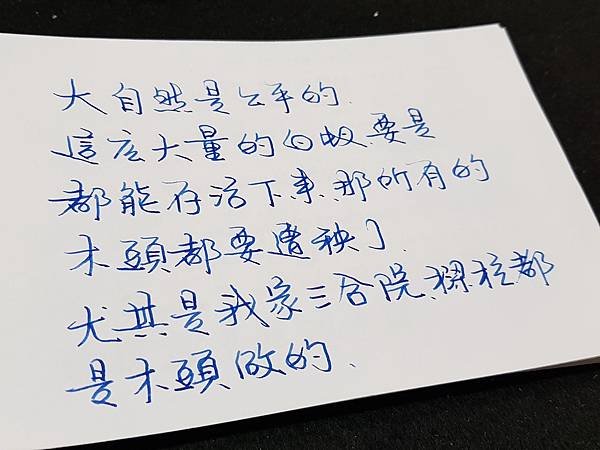 大自然是公平的.
這麼大量的白蟻.要是
都能存活下來.那所有的
木頭都要遭秧了.
尤其是我家三合院.樑柱都
是木頭做的.